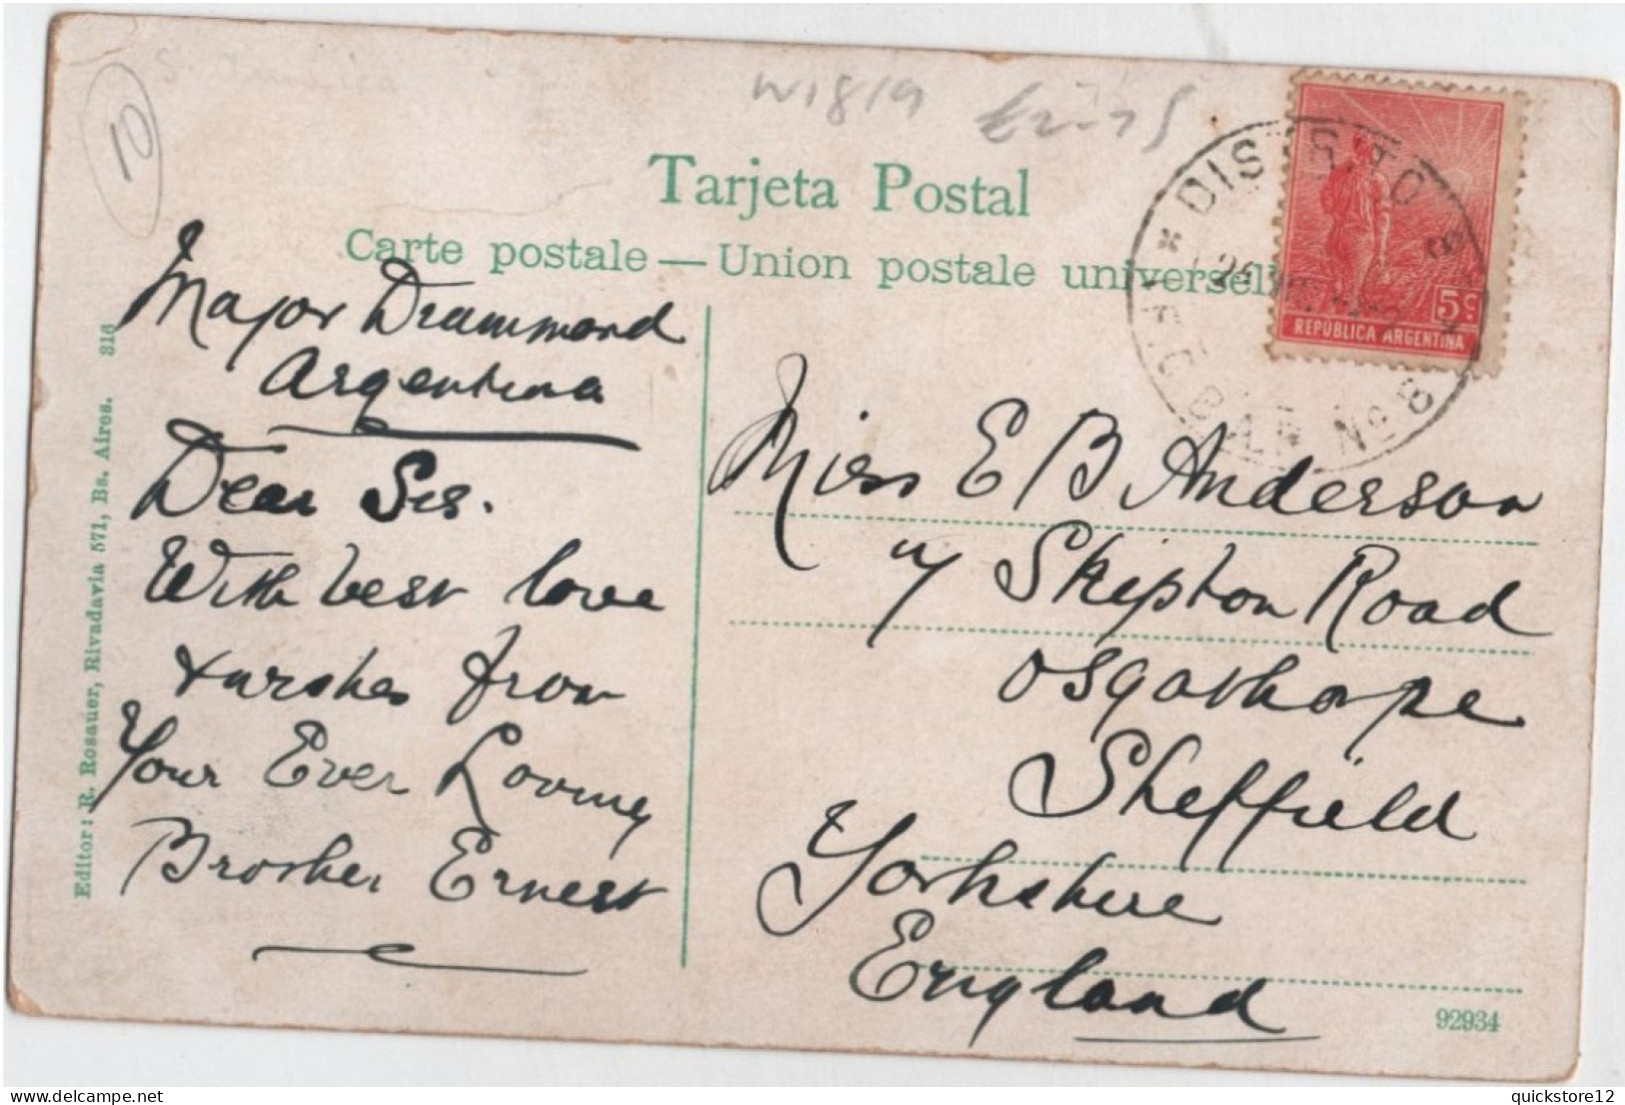 10
W1819
Tarjeta Postal
Carte postale — Union postale universelle
DISTRITO
No 8
5c
REPÚBLICA ARGENTINA
Major Drummond
Argentina
Dear Sis.
With best love
& wishes from
Your Ever Loving
Brother Ernest
Miss E B Anderson
Skipton Road
Osgathorpe
Sheffield
Yorkshire
England
92934
Editor: R. Rosauer, Rivadavia 571, Bs. Aires. 316
quickstore12